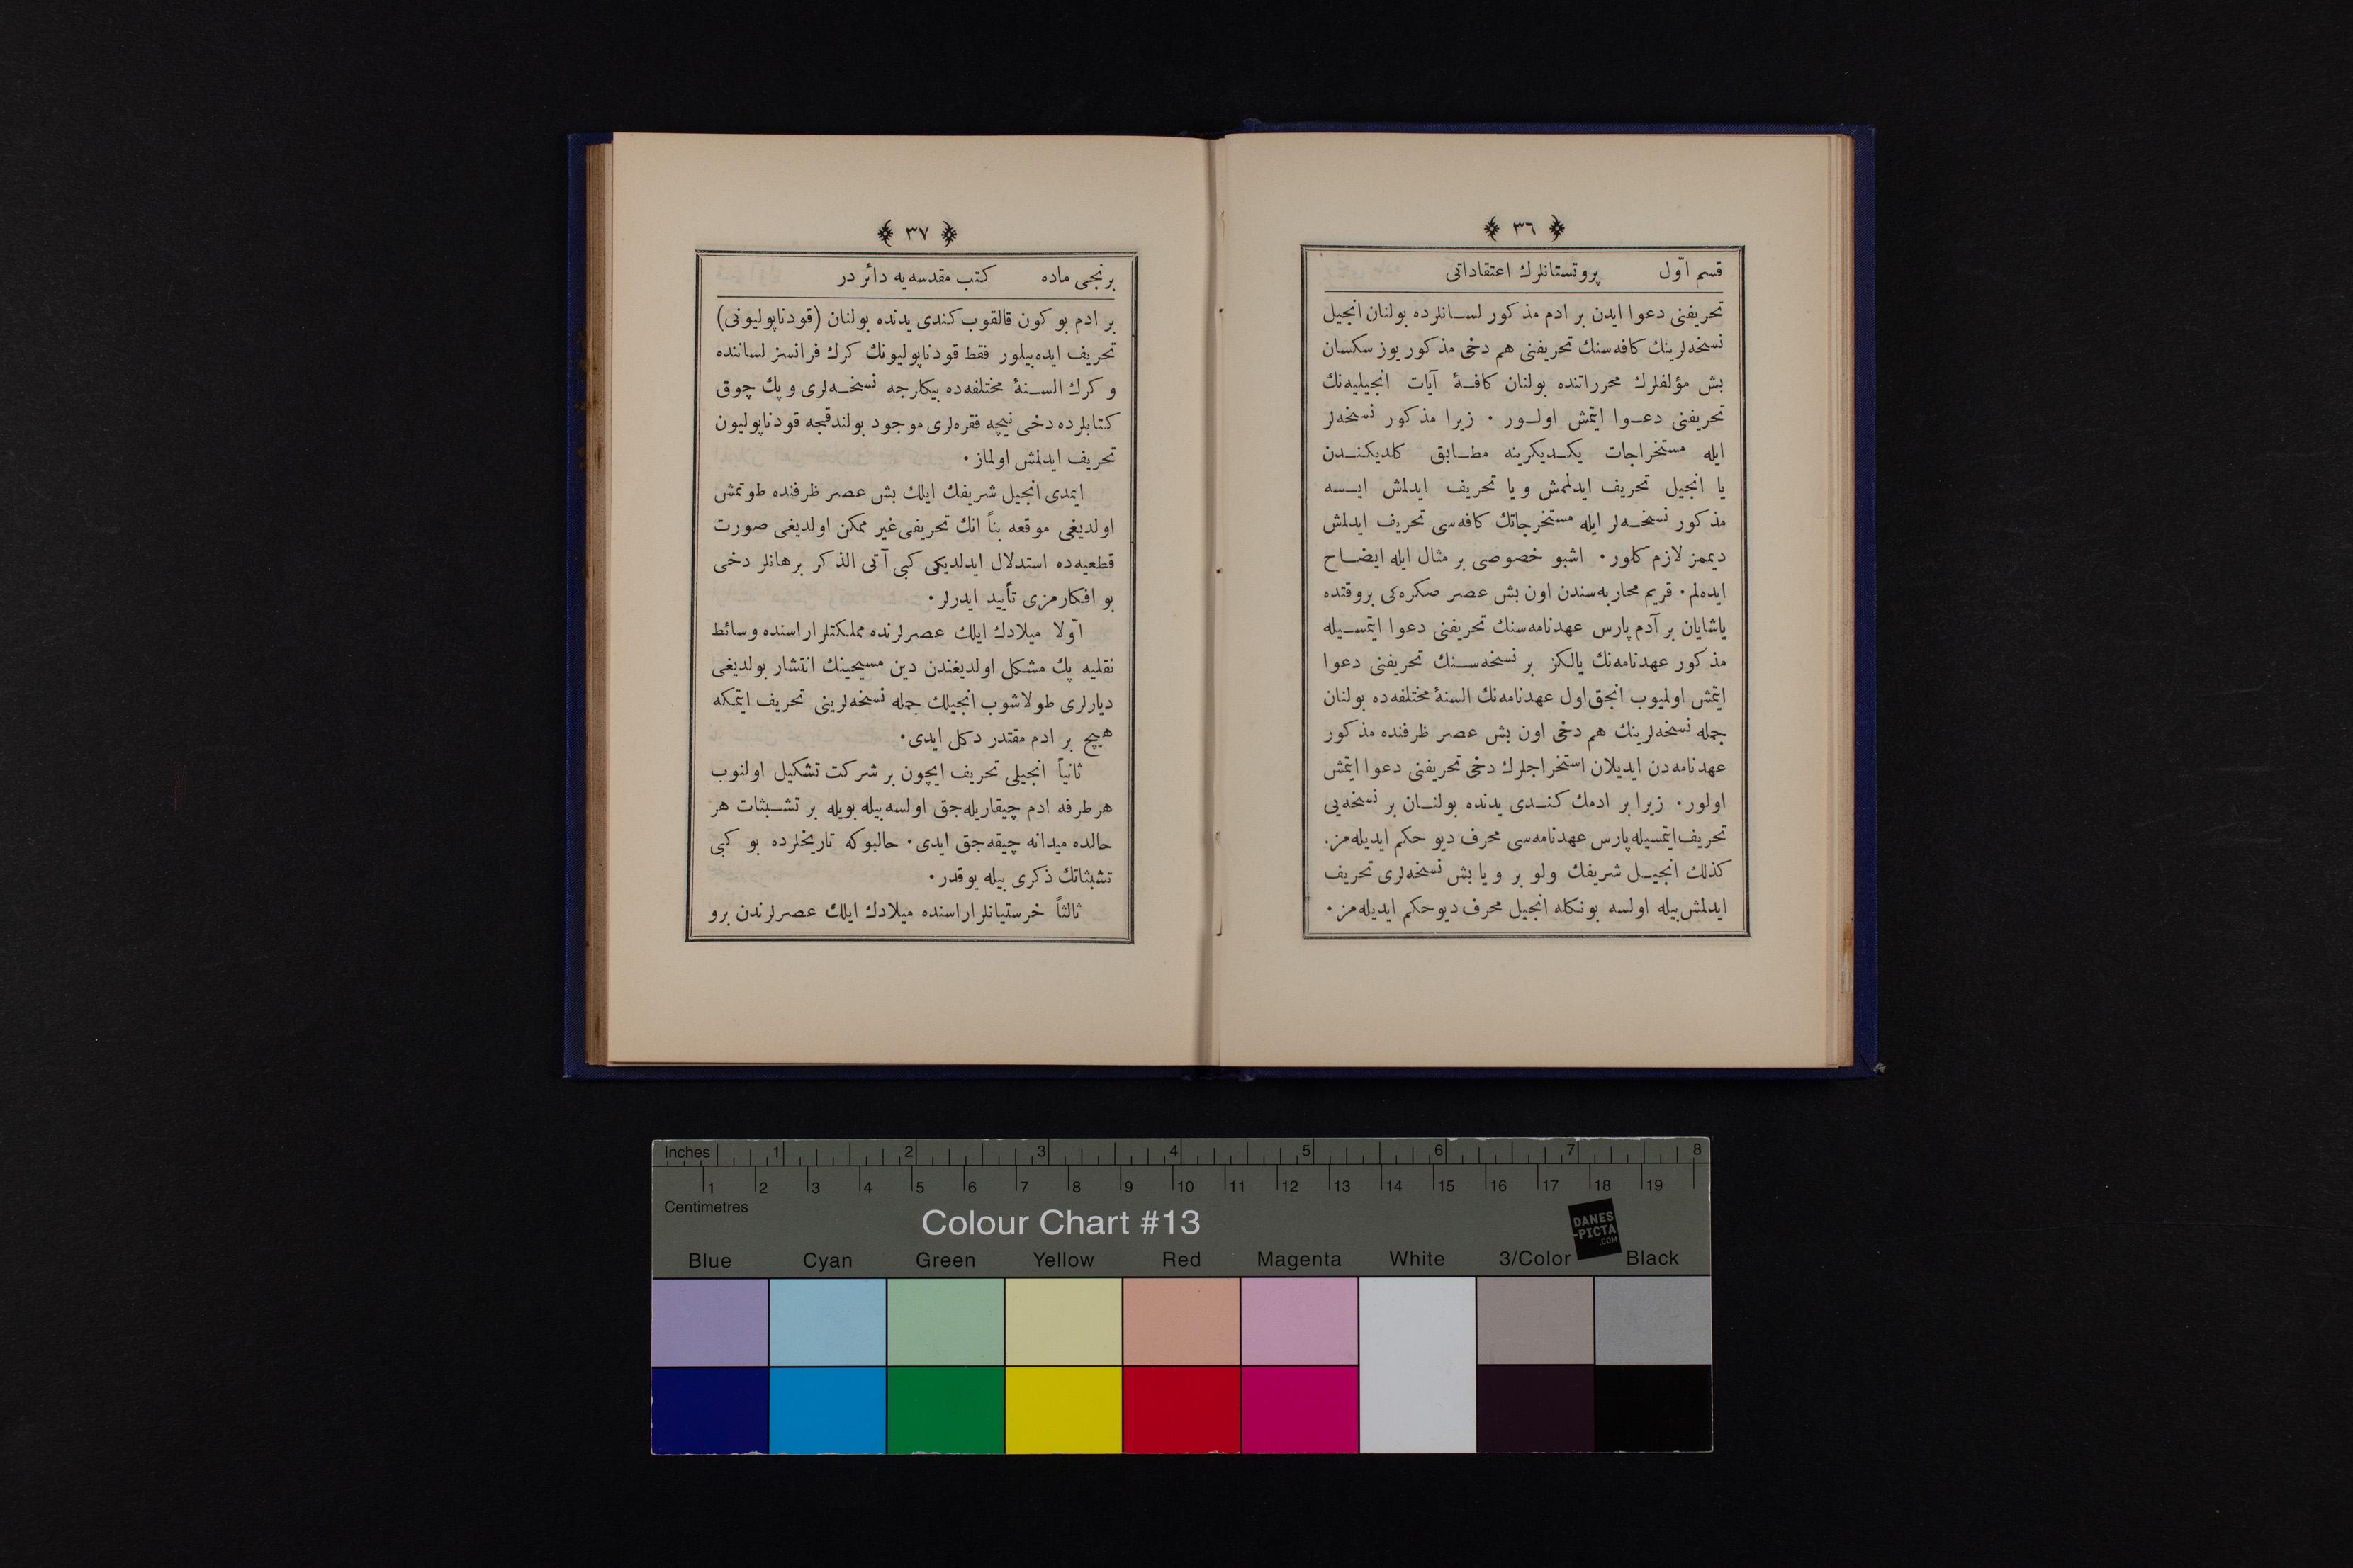 ﴿ ٣٦ ﴾
قسم اوّل پروتستانلرك اعتقاداتى
تحريفنى دعوا ايدن بر ادم مذكور لسانلرده بولنان انجيل
نسخه‌لرينك كافه‌سنك تحريفنى هم دخى مذكور يوز سكسان
بش مؤلفلرك محرراتنده بولنان كافۀ آيات انجيليه‌نك
تحريفنى دعوا ايتمش اولور ٠ زيرا مذكور نسخه‌لر
ايله مستخراجات يكديكرينه مطابق كلديكندن
يا انجيل تحريف ايدلممش و يا تحريف ايدلمش ايسه
مذكور نسخه‌لر ايله مستخرجاتك كافه‌سى تحريف ايدلمش
ديممز لازم كلور ٠ اشبو خصوصى بر مثال ايله ايضاح
ايده‌لم ٠ قريم محاربه‌سندن اون بش عصر صكره‌كى بروقتده
ياشايان بر آدم پارس عهدنامه‌سنك تحريفنى دعوا ايتمسيله
مذكور عهدنامه‌نك يالكز بر نسخه‌سنك تحريفنى دعوا
ايتمش اولميوب انجق اول عهدنامه‌نك السنۀ مختلفه‌ده بولنان
جمله نسخه‌لرينك هم دخى اون بش عصر ظرفنده مذكور
عهدنامه‌دن ايديلان استخراجلرك دخى تحريفنى دعوا ايتمش
اولور ٠ زيرا بر ادمك كندى يدنده بولنان بر نسخه‌يى
تحريف ايتمسيله پارس عهدنامه‌سى محرف ديو حكم ايديله‌مز ٠
كذلك انجيل شريفك ولو بر و يا بش نسخه‌لرى تحريف
ايدلمش بيله اولسه بونكله انجيل محرف ديو حكم ايديله‌مز ٠
﴿ ٣٧ ﴾
برنجى ماده كتب مقدسه‌يه دائر در
بر ادم بو كون قالقوب كندى يدنده بولنان (قودناپوليونى)
تحريف ايده‌بيلور فقط قودناپوليونك كرك فرانسز لساننده
و كرك السنۀ مختلفه‌ده بيكلرجه نسخه‌لرى و پك چوق
كتابلرده دخى نيچه فقره‌لرى موجود بولندقجه قودناپوليون
تحريف ايدلمش اولماز ٠
ايمدى انجيل شريفك ايلك بش عصر ظرفنده طوتمش
اولديغى موقعه بناً انك تحريفى غير ممكن اولديغى صورت
قطعيه‌ده استدلال ايدلديكى كبى آتى الذكر برهانلر دخى
بو افكارمزى تأييد ايدرلر ٠
اوّلا ميلادك ايلك عصرلرنده مملكتلر اراسنده وسائط
نقليه پك مشكل اولديغندن دين مسيحينك انتشار بولديغى
ديارلرى طولاشوب انجيلك جمله نسخه‌لرينى تحريف ايتمكه
هيچ بر ادم مقتدر دكل ايدى ٠
ثانياً انجيلى تحريف ايچون بر شركت تشكيل اولنوب
هر طرفه ادم چيقاريله‌جق اولسه بيله بويله بر تشبثات هر
حالده ميدانه چيقه‌جق ايدى ٠ حالبوكه تاريخلرده بو كبى
تشبثاتك ذكرى بيله يوقدر ٠
ثالثاً خرستيانلر اراسنده ميلادك ايلك عصرلرندن برو
Inches 1 2 3 4 5 6 7 8
1 2 3 4 5 6 7 8 9 10 11 12 13 14 15 16 17 18 19
Centimetres
Colour Chart #13
DANES
-PICTA
.COM
Blue Cyan Green Yellow Red Magenta White 3/Color Black